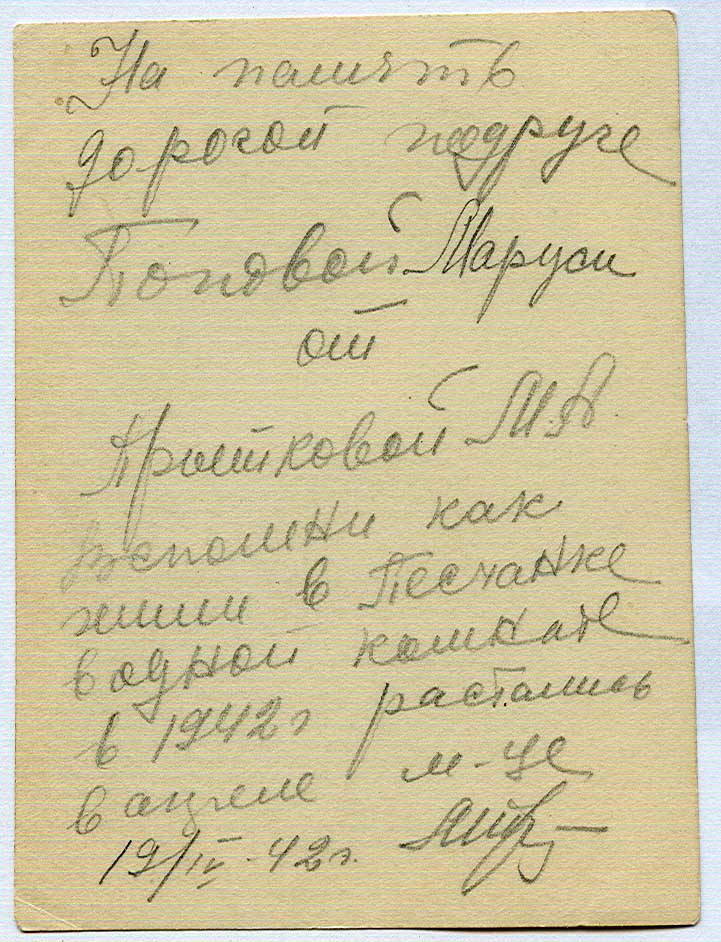 На память
дорогой подруге
Поповой Маруси
от
М.А.
Вспомни как
жили в Песчанке
в одной комнате
в 1942 г растались
в апреле м-це
19/IV-42 г.